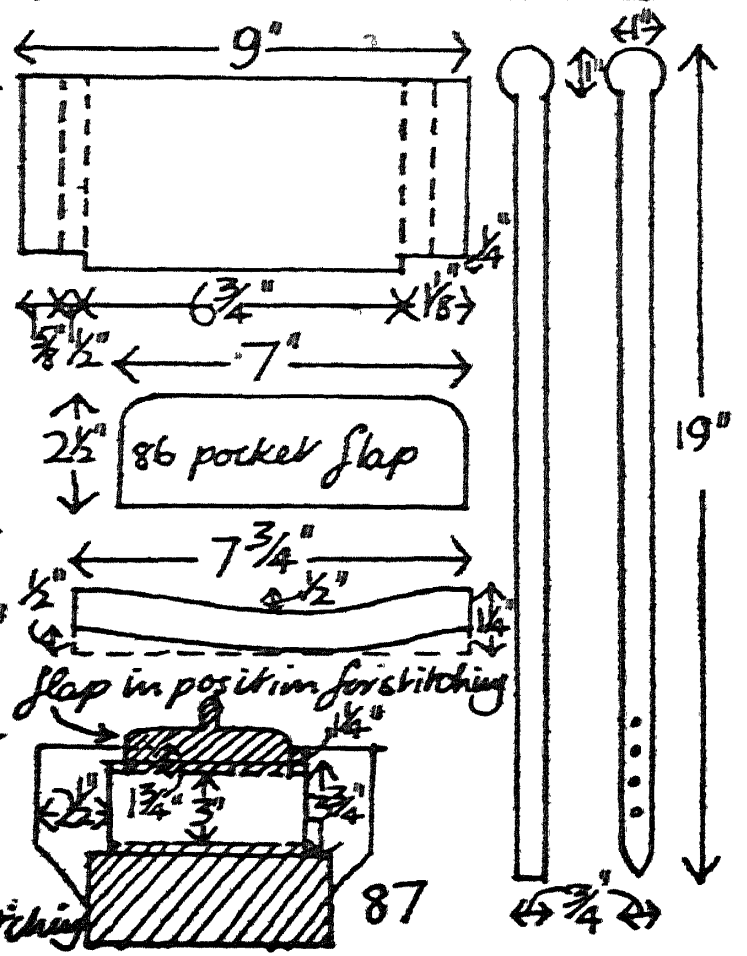 9"
1"
1"
1/4"
6 3/4"
1 1/8"
5/8" 1/2"
7"
2 1/2"
86 pocket flap
19"
7 3/4"
1/2"
1/2"
1 1/4"
flap in position for stitching
1 1/4"
2 1/2"
1 3/4"
3"
3 3/4"
87
3/4"